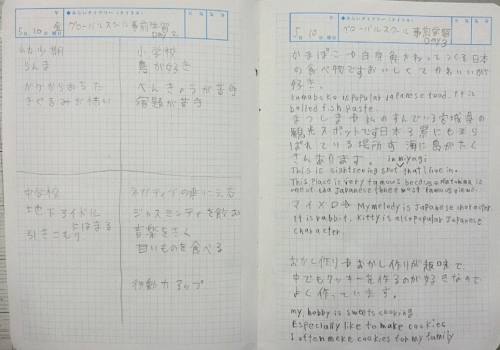 5月10日
グローバルスクール事前学習
DAY 2
幼少期
りんま
がけからおちた
きぐるみが怖い
小学校
鳥が好き
べんきょうが苦手
宿題が苦手
中学校
地下アイドル
にはまる
引きこもり
ネガティブの乗りこえ方
ジャスミンティを飲む
音楽をきく
甘いものを食べる
行動力アップ
5月10日
グローバルスクール事前学習
DAY3
かまぼこ→白身魚をねってつくる日本
の食べ物ですおいしくてかわいいが
好き。
kamaboko is popular japanese food. It is
boiled fish paste.
まつしま→私のすんでいる宮城県の
観光スポットです日本3景にもえら
ばれている場所す 海に島がたく
さんあります。
in miyagi
This is sightseeing spot that live in.
This place is very famous because Matsushima is
one of tha Japanese three most famous views.
マイメロ→Mymelody is Japanese character.
It is rabbit. Kitty is also popular Japanese
character.
おかし作り→おかし作りが趣味で、
中でもクッキーを作るのが好きなので
よく作っています。
my, hobby is sweets cooking
Especially like to make cookies
I often meke cookies for my family